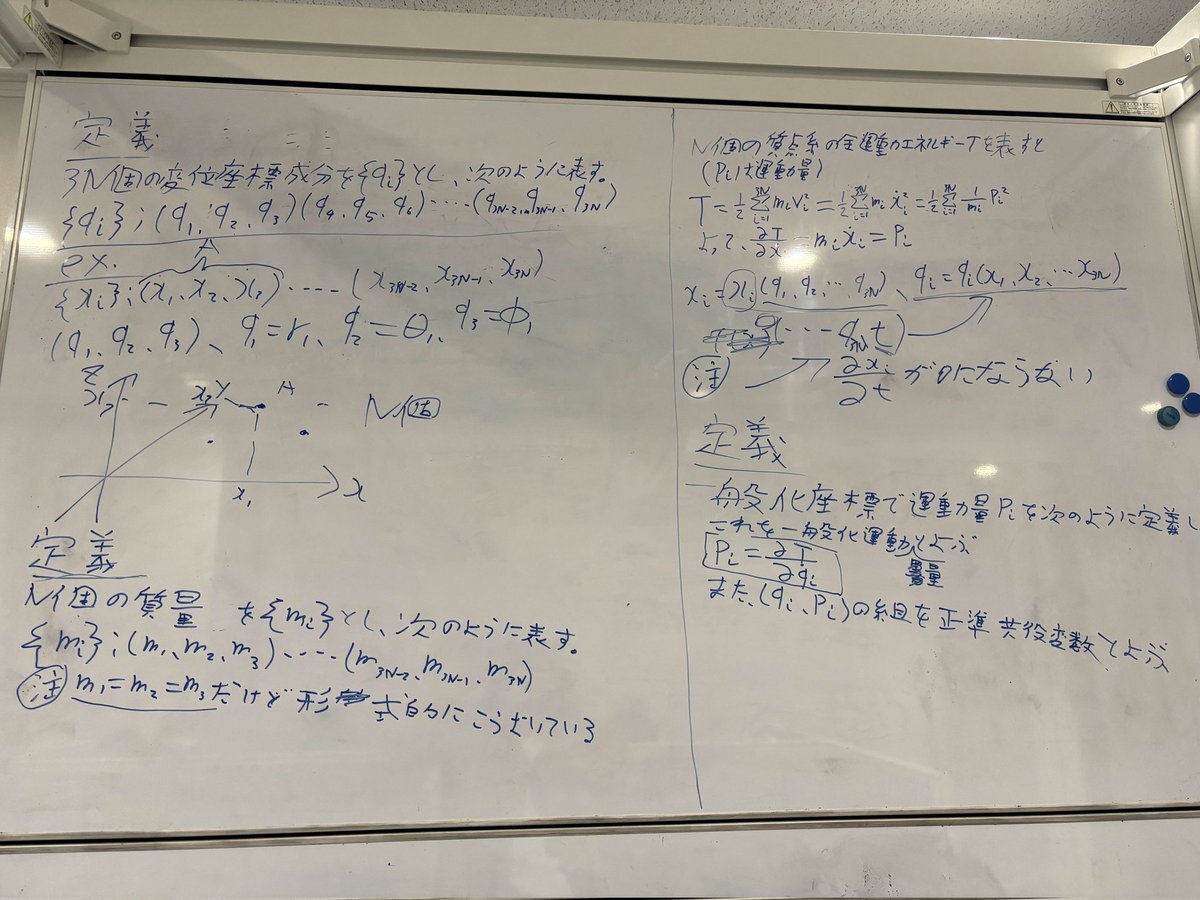 定義
3N個の変位座標成分を{qi}とし、次のように表す。
{qi};(q1,q2,q3)(q4,q5,q6)‥‥(q3N-2,q3N-1,q3N)
ex.
A
{xi};(x1,x2,x3)‥‥(x3N-2,x3N-1,x3N)
(q1,q2,q3)、q1=r1、q2=θ1、q3=φ1
A
N個
x1
x
定義
N個の質量を{mi}とし、次のように表す。
{mi};(m1,m2,m3)‥‥(m3N-2,m3N-1,m3N)
注 m1=m2=m3だけど形式的にこうかいている
N個の質点系の全運動エネルギーTを表すと
(Piは運動量)
T=1/2 Σ(i=1→3N) mi vi²=1/2 Σ(i=1→3N) mi ẋi²=1/2 Σ(i=1→3N) 1/mi Pi²
よって、∂T/∂ẋi=mi ẋi=Pi
xi=xi(q1,q2,‥,q3N)、qi=qi(x1,x2,‥x3N)
‥‥q3N t)
注 ∂xi/∂tが0にならない
定義
一般化座標で運動量Piを次のように定義し
これを一般化運動量とよぶ
Pi=∂T/∂q̇i
また、(qi,Pi)の組を正準共役変数とよぶ